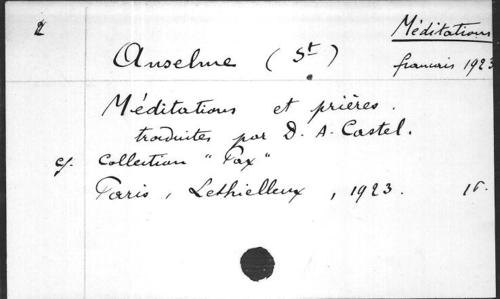 2
Méditations
Anselme (St)
français 1923
Méditations et prières.
traduites par D. A. Castel.
c/. Collection "Pax"
Paris, Lethielleux, 1923. 16.